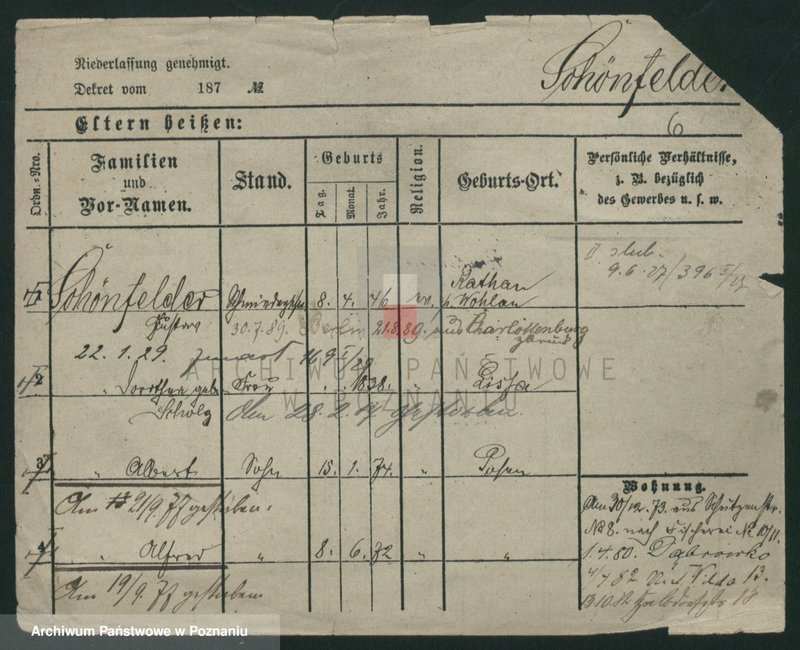 Niederlassung genehmigt.
Dekret vom 187 №
Schönfelder
6
Eltern heißen:
Ordn.-Nro.
Familien
und
Vor-Namen.
Stand.
Geburts
Tag.
Monat.
Jahr.
Religion.
Geburts-Ort.
Persönliche Verhältnisse,
z. B. bezüglich
des Gewerbes u. s. w.
9.6.27/396
1 Schönfelder 8. 4. 46 ev. Rathau
Wohlau
Gustav 30.7.89. Berlin 21.8.89. aus Charlottenburg
zurück
22.1.29. 
2 Dorothea geb. Frau " " 1838. " Lissa
Scholz Am 28.2.17 gestorben.
3 " Albert Sohn 15. 1. 74. " Posen
Am 21/9 77 gestorben.
4 " Alfred " 8. 6. 72 " "
Am 19/9. 77 gestorben
Wohnung.
Am 30/12. 73. aus Schützenstr.
No 8. nach Fischerei No 10/11.
1.4.80. Dąbrowko
4 7 82 Wilda 13.
13 10 82 18
ARCHIWUM PAŃSTWOWE
W POZNANIU
Archiwum Państwowe w Poznaniu